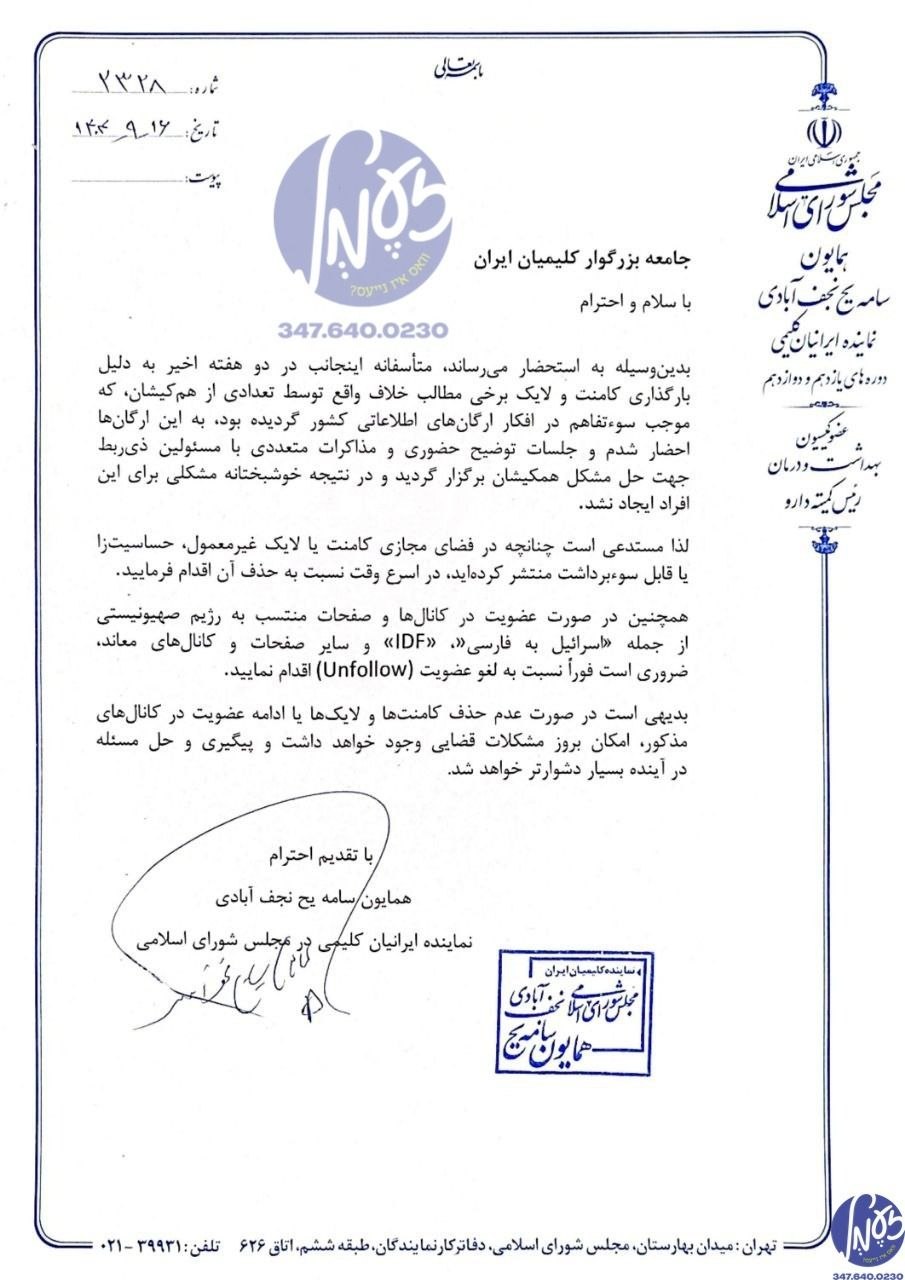 باسمه تعالی
شماره: ۲۳۲۸
تاریخ: ۱۴۰۴_۹_۱۶
پیوست:
جمهوری اسلامی ایران
مجلس شورای اسلامی
همایون
سامه یح نجف آبادی
نماینده ایرانیان کلیمی
دوره های یازدهم و دوازدهم
عضو کمیسیون
بهداشت و درمان
رئیس کمیته دارو
347.640.0230
جامعه بزرگوار کلیمیان ایران
با سلام و احترام
بدین‌وسیله به استحضار می‌رساند، متأسفانه اینجانب در دو هفته اخیر به دلیل
بارگذاری کامنت و لایک برخی مطالب خلاف واقع توسط تعدادی از هم‌کیشان، که
موجب سوءتفاهم در افکار ارگان‌های اطلاعاتی کشور گردیده بود، به این ارگان‌ها
احضار شدم و جلسات توضیح حضوری و مذاکرات متعددی با مسئولین ذی‌ربط
جهت حل مشکل همکیشان برگزار گردید و در نتیجه خوشبختانه مشکلی برای این
افراد ایجاد نشد.
لذا مستدعی است چنانچه در فضای مجازی کامنت یا لایک غیرمعمول، حساسیت‌زا
یا قابل سوءبرداشت منتشر کرده‌اید، در اسرع وقت نسبت به حذف آن اقدام فرمایید.
همچنین در صورت عضویت در کانال‌ها و صفحات منتسب به رژیم صهیونیستی
از جمله «اسرائیل به فارسی»، «IDF» و سایر صفحات و کانال‌های معاند،
ضروری است فوراً نسبت به لغو عضویت (Unfollow) اقدام نمایید.
بدیهی است در صورت عدم حذف کامنت‌ها و لایک‌ها یا ادامه عضویت در کانال‌های
مذکور، امکان بروز مشکلات قضایی وجود خواهد داشت و پیگیری و حل مسئله
در آینده بسیار دشوارتر خواهد شد.
با تقدیم احترام
همایون سامه یح نجف آبادی
نماینده ایرانیان کلیمی در مجلس شورای اسلامی
نماینده کلیمیان ایران
مجلس شورای اسلامی
نجف آبادی
همایون سامه یح
تهران: میدان بهارستان، مجلس شورای اسلامی، دفاتر کار نمایندگان، طبقه ششم، اتاق ۶۲۶ تلفن: ۳۹۹۳۱-۰۲۱
347.640.0230